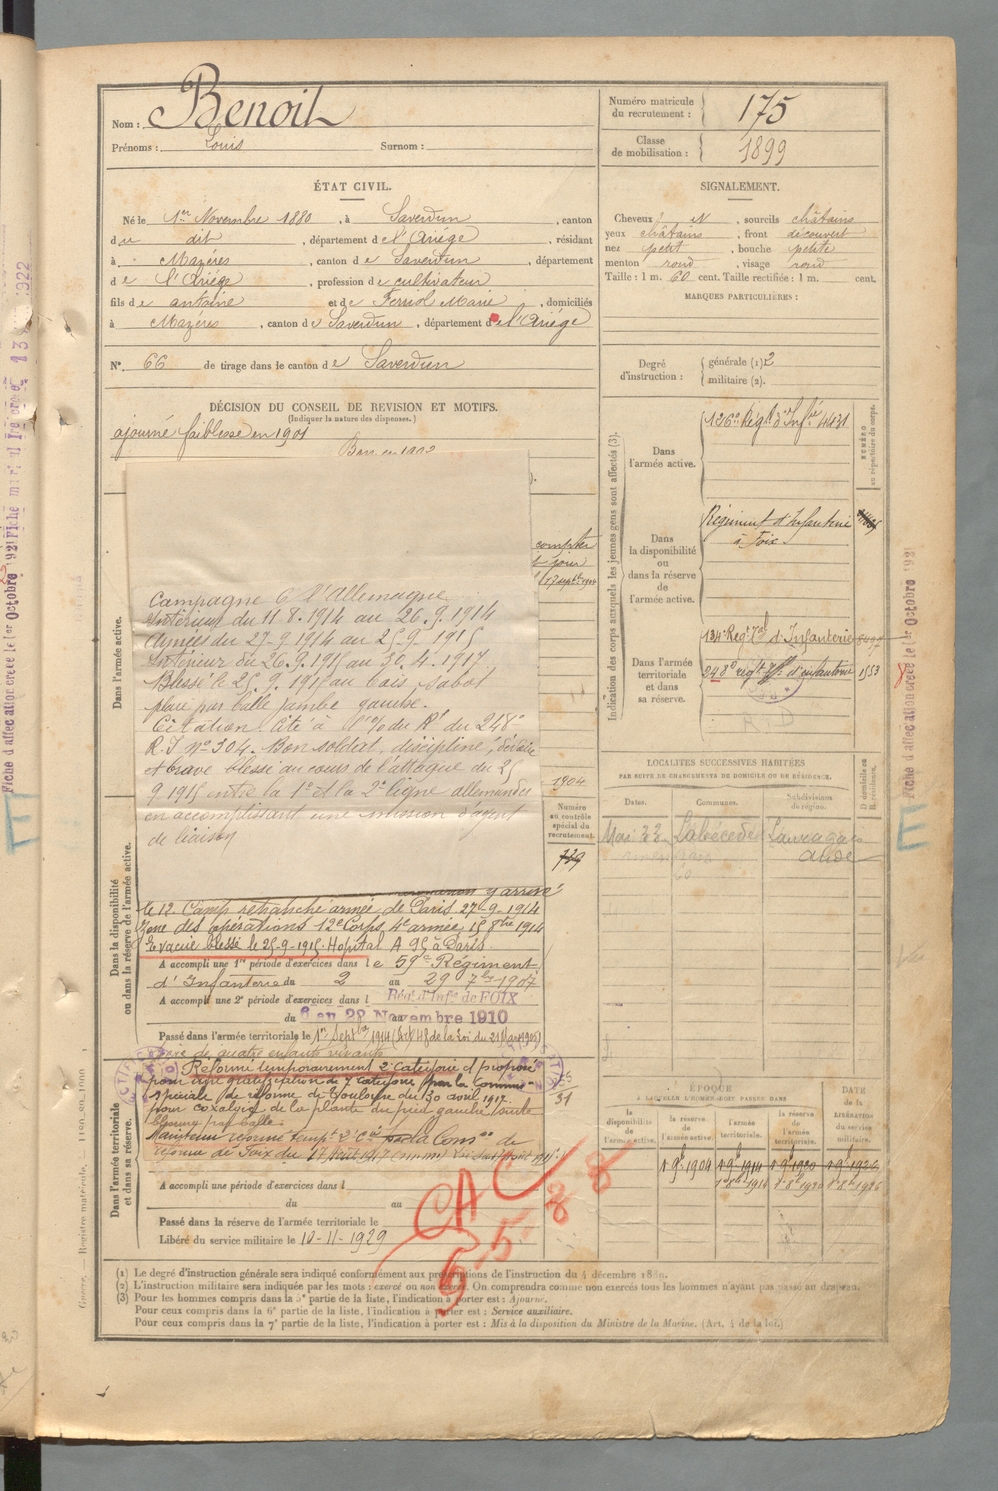 Nom : Benoit
Prénoms : Louis Surnom :
Numéro matricule
du recrutement : 175
Classe
de mobilisation : 1899
ÉTAT CIVIL.
Né le 1er Novembre 1880, à Saverdun, canton
du dit, département de l'Ariége, résidant
à Mazéres, canton de Saverdun, département
de l'Ariége, profession de cultivateur
fils de antoine et de Ferriol Marie, domiciliés
à Mazéres, canton de Saverdun, département de l'Ariége
N° 66 de tirage dans le canton de Saverdun
DÉCISION DU CONSEIL DE REVISION ET MOTIFS.
(Indiquer la nature des dispenses.)
ajourné faiblesse en 1901
SIGNALEMENT.
Cheveux N, sourcils châtains
yeux châtains, front découvert
nez petit, bouche petite
menton rond, visage rond
Taille : 1 m. 60 cent. Taille rectifiée : 1 m. cent.
MARQUES PARTICULIÈRES :
Degré
d'instruction :
générale (1) 2
militaire (2).
Indication des corps auxquels les jeunes gens sont affectés (3).
Dans
l'armée active.
126e Régt d'Infie 4431
NUMÉRO
au répertoire du corps.
Dans
la disponibilité
ou
dans la réserve
de
l'armée active.
Régiment d'Infanterie
à Foix
Dans l'armée
territoriale
et dans
sa réserve.
134e Regt Tal d'Infanterie
248e regt d'infanterie 1553
Dans l'armée active.
compter
1904
Campagne C l'Allemagne
Intérieur du 11.8.1914 au 26.9.1914
Armées du 27.9.1914 au 25.9.1915
Intérieur du 26.9.1915 au 30.4.1917
Blessé le 25.9.1915 au bois sabot
plaie par balle jambe gauche.
Citation Cité à l'o/ du Rt du 248e
R.I n° 304. Bon soldat, discipliné,
et brave blessé au cours de l'attaque du 25
9.1915 entre la 1e et la 2e ligne allemandes
en accomplissant une mission d'agent
de liaison
Numéro
au contrôle
spécial du
recrutement.
729
LOCALITÉS SUCCESSIVES HABITÉES
PAR SUITE DE CHANGEMENTS DE DOMICILE OU DE RÉSIDENCE.
Dates. Communes. Subdivisions
de région. D domicile ou
R résidence.
Mai 33 Labécède Lauragais
aude
Dans la disponibilité
ou dans la réserve de l'armée active.
le 12. Camp retranché armée de Paris 27-9-1914
Zone des opérations 12e Corps 4e armée 15 8bre 1914
Evacué blessé le 25-9-1915. Hopital A 95 à Paris.
A accompli une 1re période d'exercices dans le 59e Régiment
d'Infanterie du 2 au 29 7bre 1907
A accompli une 2e période d'exercices dans l Régt d'Infie de FOIX
du 6 au 28 Novembre 1910
Passé dans l'armée territoriale le 1er Septbre 1914 (Art 48 de la Loi du 21 Mars 1905)
Père de quatre enfants vivants
Dans l'armée territoriale
et dans sa réserve.
Réformé temporairement 2e catégorie et proposé
pour une gratification de 7e catégorie par la Common
spéciale de réforme de Toulouse du 30 avril 1917
pour coxalgie de la plante du pied gauche suite
blessure par balle.
Maintenu réformé tempt 2e Cie par la Comon de
réforme de Foix du 17 Août 1917
A accompli une période d'exercices dans l
du au
Passé dans la réserve de l'armée territoriale le
Libéré du service militaire le 10-11-1929
CAC
6-5-38
ÉPOQUE
À LAQUELLE L'HOMME DOIT PASSER DANS
la
disponibilité
de
l'armée active.
la réserve
de
l'armée active.
l'armée
territoriale.
la réserve
de
l'armée
territoriale.
DATE
de la
LIBÉRATION
du
service
militaire.
1 9bre 1904 1 9bre 1914 1 9bre 1920 1 9bre 1926
(1) Le degré d'instruction générale sera indiqué conformément aux prescriptions de l'instruction du 4 décembre 1889.
(2) L'instruction militaire sera indiquée par les mots : exercé ou non exercé. On comprendra comme non exercés tous les hommes n'ayant pas passé au drapeau.
(3) Pour les hommes compris dans la 5e partie de la liste, l'indication à porter est : Ajourné.
Pour ceux compris dans la 6e partie de la liste, l'indication à porter est : Service auxiliaire.
Pour ceux compris dans la 7e partie de la liste, l'indication à porter est : Mis à la disposition du Ministre de la Marine. (Art. 4 de la loi.)
Fiche d'affectation créée le 1er Octobre 1921
E